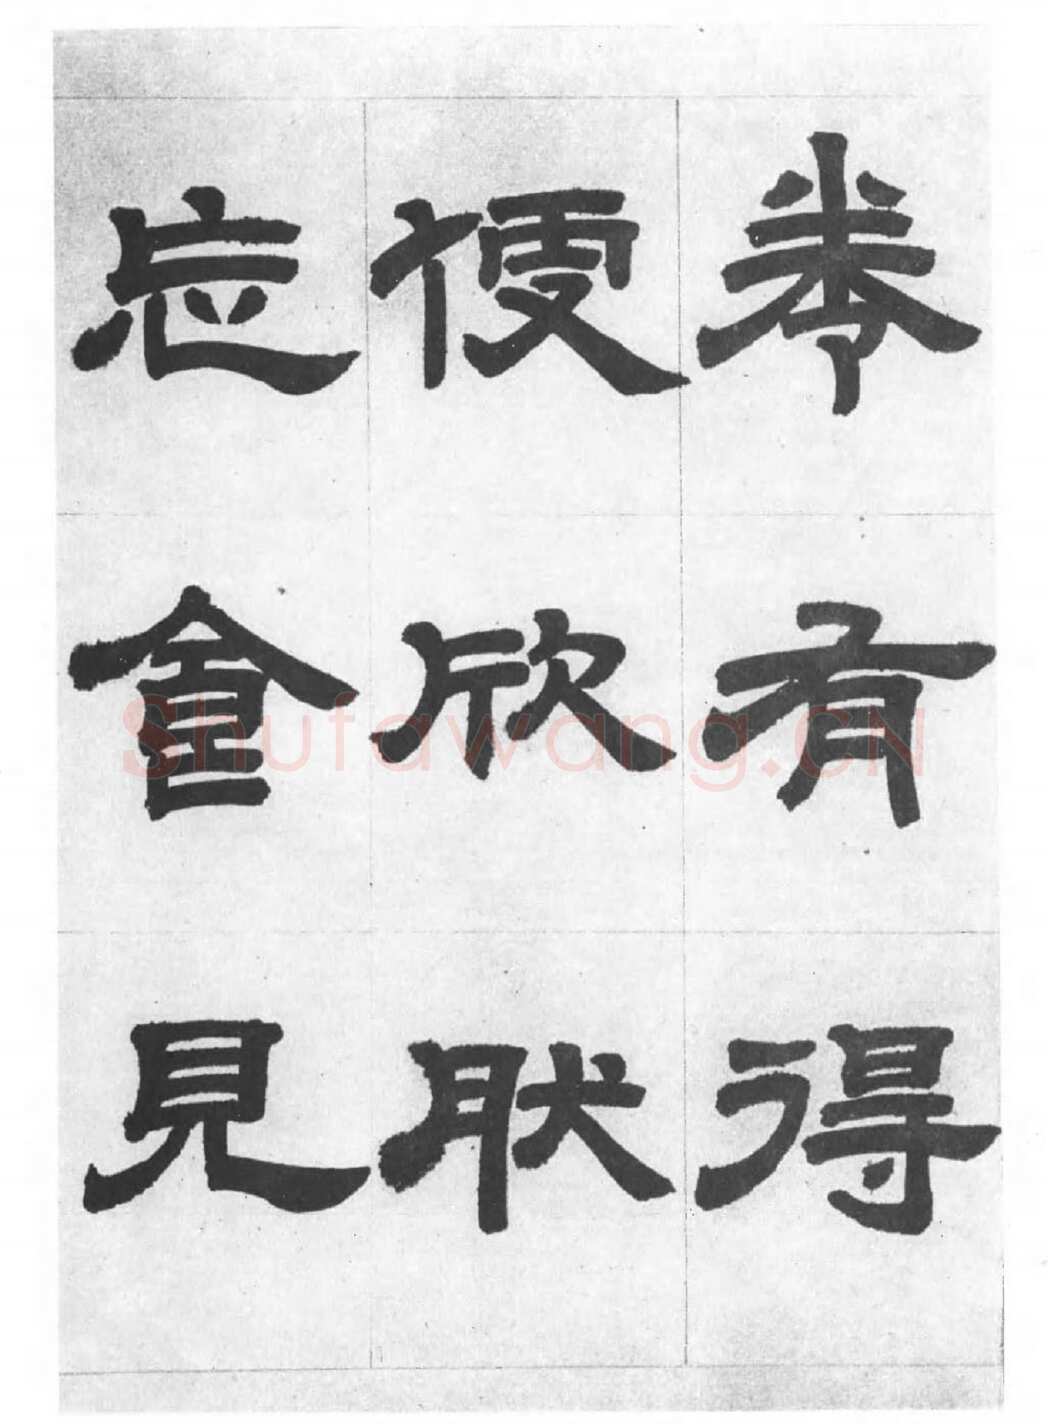 卷有得
便欣肰
忘食見
Shufawang.CN